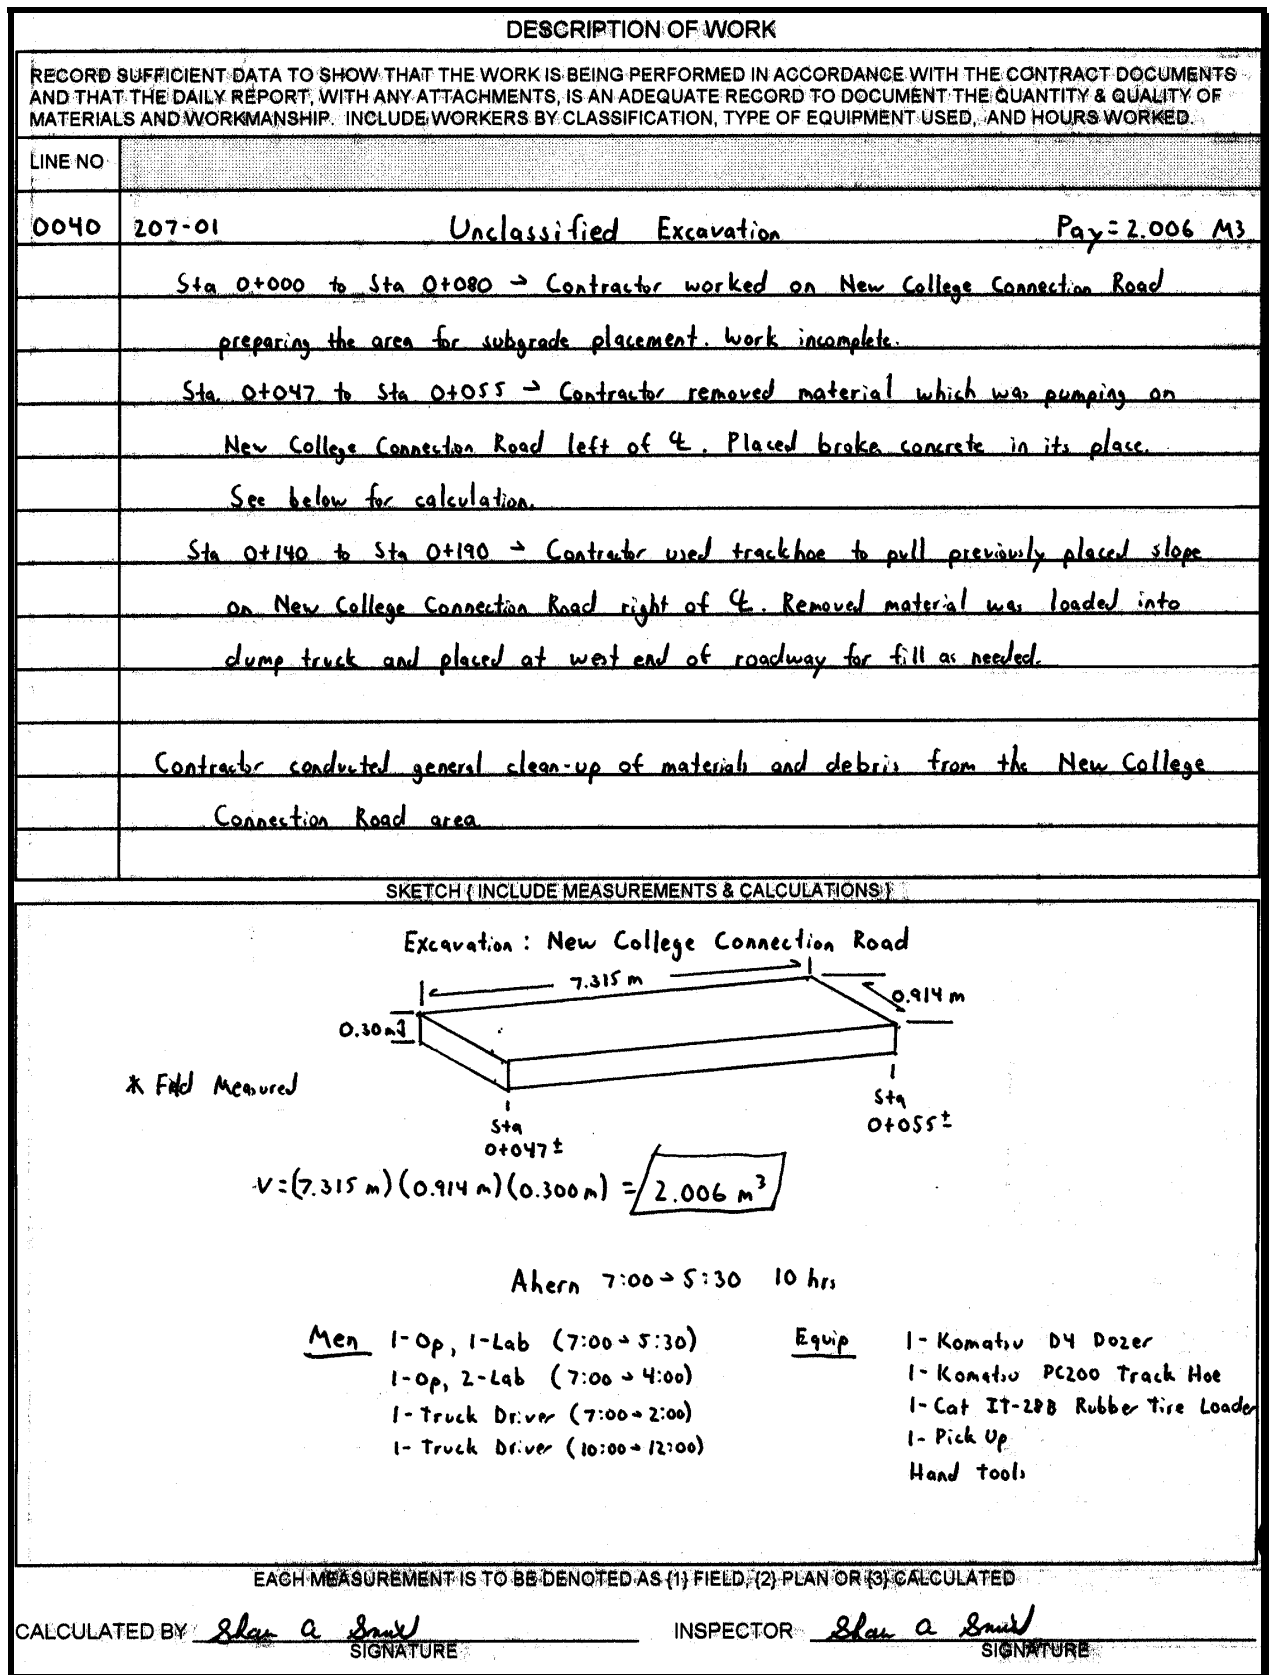 DESCRIPTION OF WORK
RECORD SUFFICIENT DATA TO SHOW THAT THE WORK IS BEING PERFORMED IN ACCORDANCE WITH THE CONTRACT DOCUMENTS
AND THAT THE DAILY REPORT, WITH ANY ATTACHMENTS, IS AN ADEQUATE RECORD TO DOCUMENT THE QUANTITY & QUALITY OF
MATERIALS AND WORKMANSHIP. INCLUDE WORKERS BY CLASSIFICATION, TYPE OF EQUIPMENT USED, AND HOURS WORKED.
LINE NO
0040 207-01 Unclassified Excavation Pay=2.006 M3
Sta 0+000 to Sta 0+080 → Contractor worked on New College Connection Road
preparing the area for subgrade placement. Work incomplete.
Sta. 0+047 to Sta 0+055 → Contractor removed material which was pumping on
New College Connection Road left of ℄. Placed broke concrete in its place.
See below for calculation.
Sta 0+140 to Sta 0+190 → Contractor used trackhoe to pull previously placed slope
on New College Connection Road right of ℄. Removed material was loaded into
dump truck and placed at west end of roadway for fill as needed.
Contractor conducted general clean-up of materials and debris from the New College
Connection Road area
SKETCH { INCLUDE MEASUREMENTS & CALCULATIONS }
Excavation: New College Connection Road
7.315 m
0.914 m
0.30 m
* Field Measured
Sta
0+055±
Sta
0+047±
V=(7.315 m)(0.914 m)(0.300 m) = 2.006 m³
Ahern 7:00→5:30 10 hrs
Men 1-Op, 1-Lab (7:00→5:30) Equip 1-Komatsu D4 Dozer
1-Op, 2-Lab (7:00→4:00) 1-Komatsu PC200 Track Hoe
1-Truck Driver (7:00→2:00) 1-Cat IT-28B Rubber Tire Loader
1-Truck Driver (10:00→12:00) 1-Pick Up
Hand tools
EACH MEASUREMENT IS TO BE DENOTED AS {1} FIELD, {2} PLAN OR {3} CALCULATED
CALCULATED BY INSPECTOR
SIGNATURE SIGNATURE